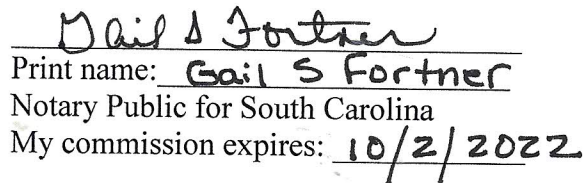 Gail S Fortner
Print name: Gail S Fortner
Notary Public for South Carolina
My commission expires: 10/2/2022